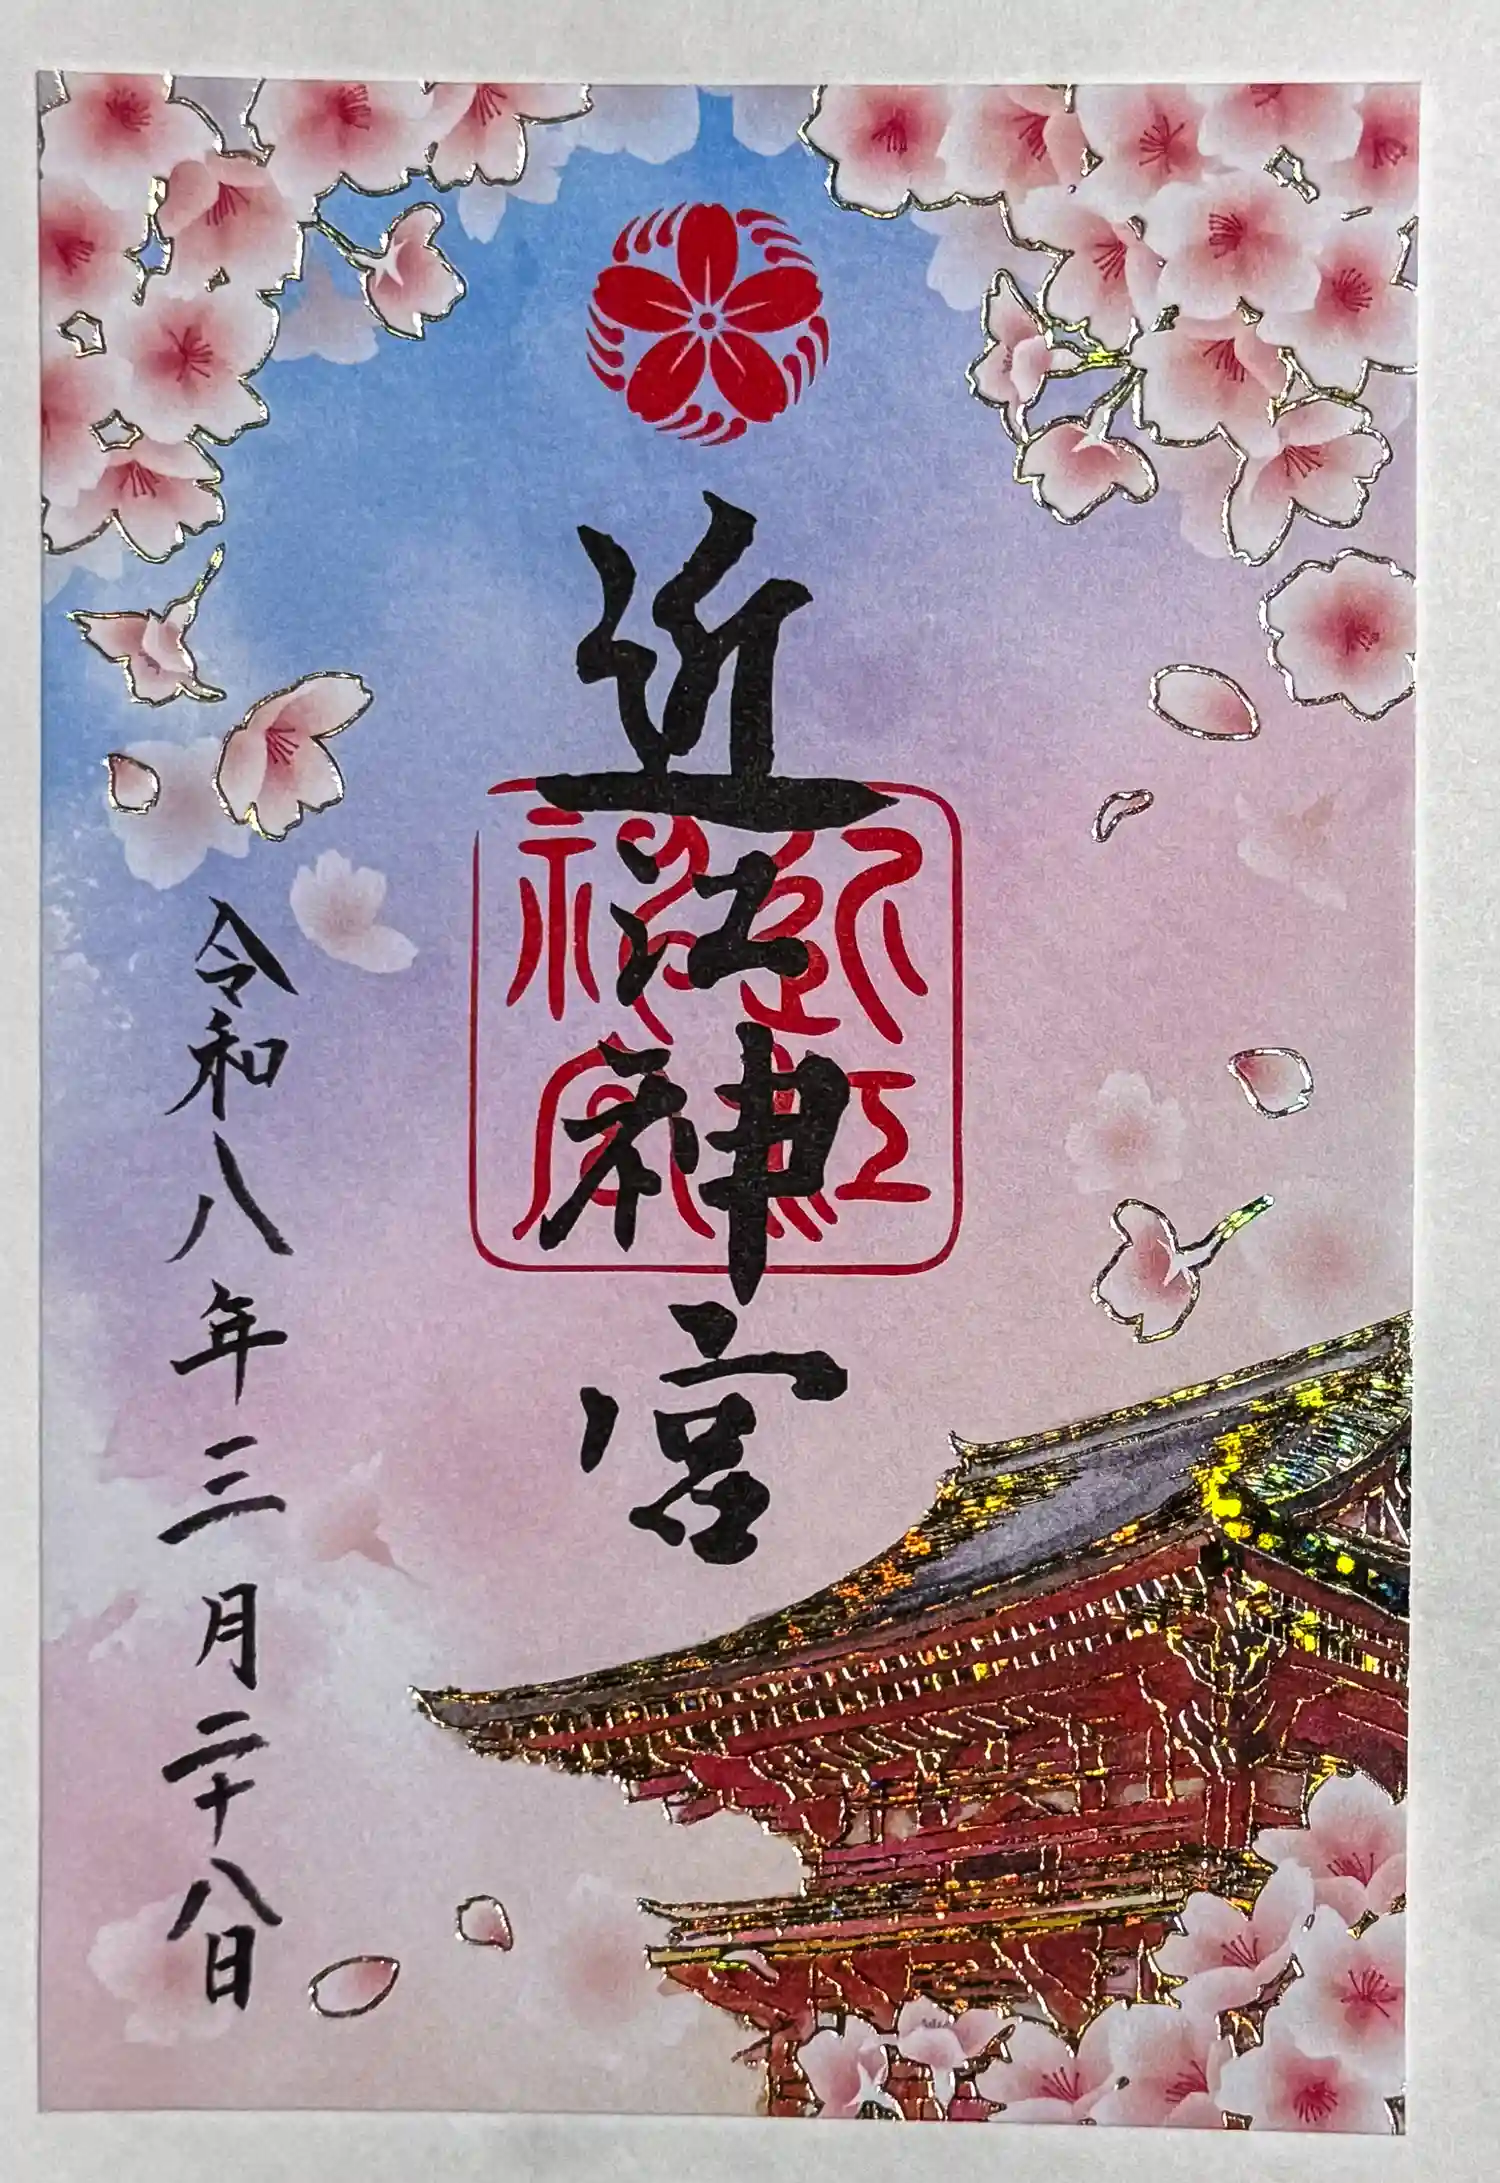 近江神宮
令和八年三月二十八日
近江神宮